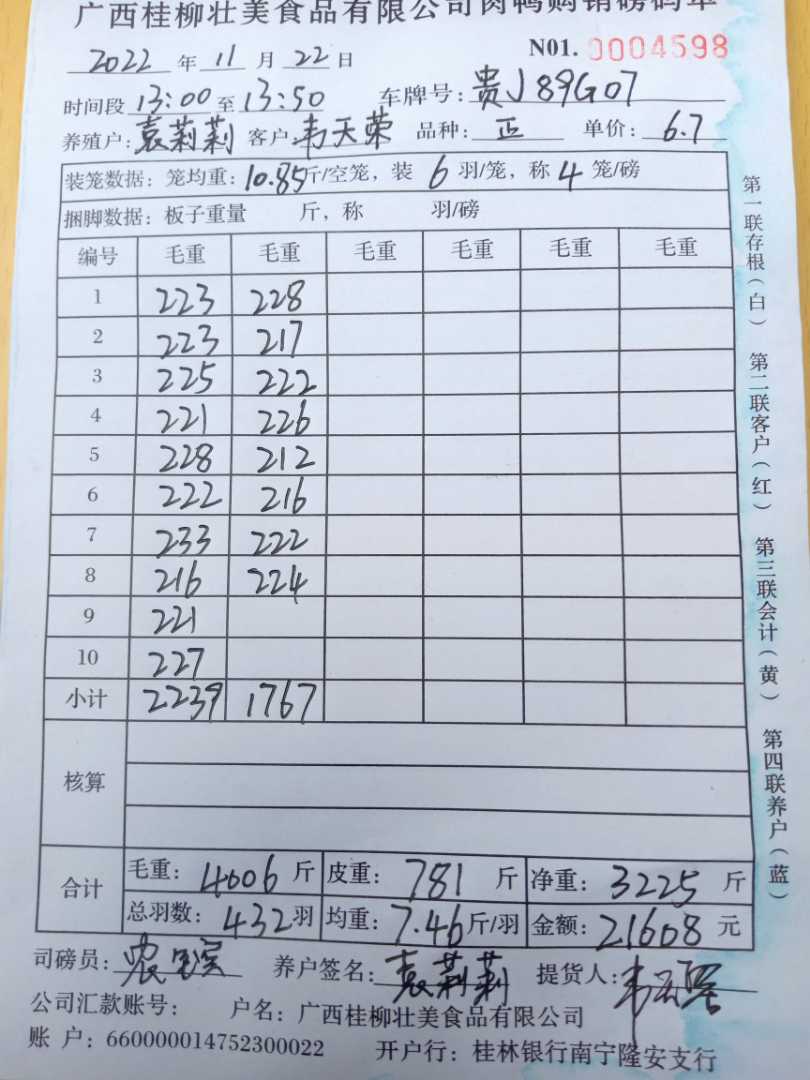 广西桂柳壮美食品有限公司肉鸭购销磅码单
2022 年 11 月 22 日 N01. 0004598
时间段 13:00 至 13:50 车牌号: 贵J89G07
养殖户: 袁莉莉 客户 韦天荣 品种: 正 单价: 6.7
装笼数据: 笼均重: 10.85斤/空笼, 装 6 羽/笼, 称 4 笼/磅
捆脚数据: 板子重量 斤, 称 羽/磅
编号 毛重 毛重 毛重 毛重 毛重 毛重
1 223 228
2 223 217
3 225 222
4 221 226
5 228 212
6 222 216
7 233 222
8 216 224
9 221
10 227
小计 2239 1767
核算
合计 毛重: 4006 斤 皮重: 781 斤 净重: 3225 斤
总羽数: 432 羽 均重: 7.46 斤/羽 金额: 21608 元
司磅员: 养户签名: 袁莉莉 提货人:
公司汇款账号: 户名: 广西桂柳壮美食品有限公司
账 户: 660000014752300022 开户行: 桂林银行南宁隆安支行
第一联存根(白) 第二联客户(红) 第三联会计(黄) 第四联养户(蓝)